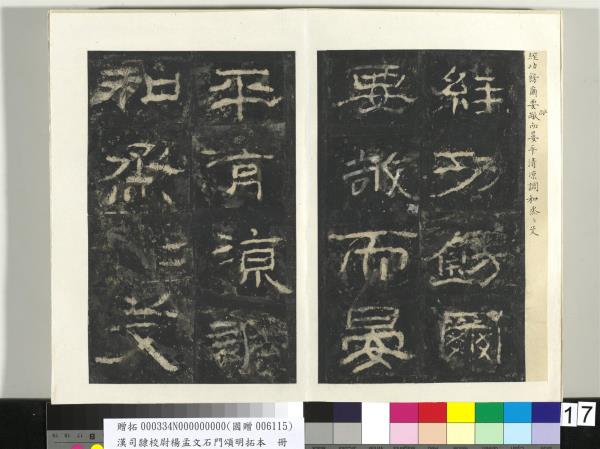 經功飭爾要敞而晏平清涼調和烝〻艾
經功飭爾
要敞而晏
平清涼調
和烝〻艾
贈拓 000334N000000000(國贈 006115)
漢司隸校尉楊孟文石門頌明拓本 冊
17